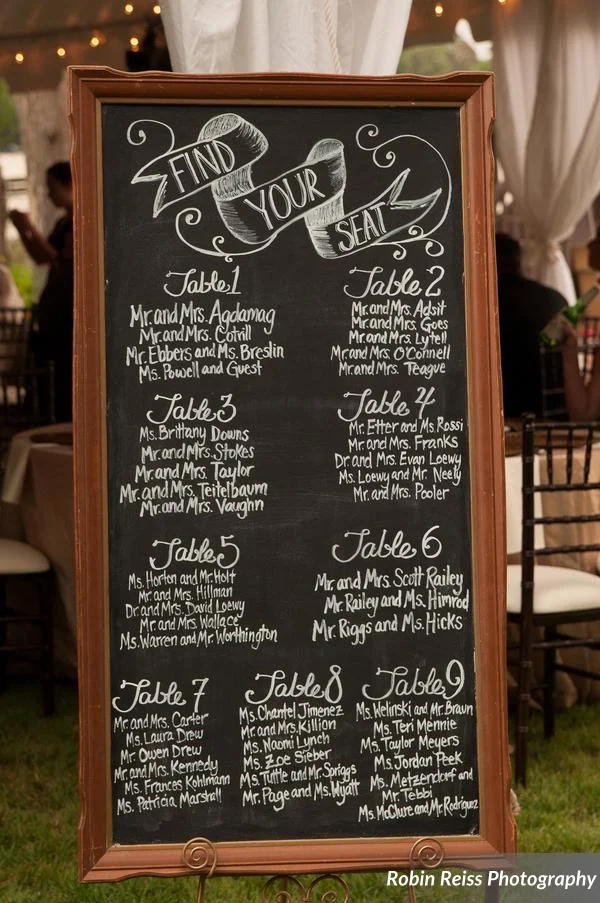 FIND
YOUR
SEAT
Table 1
Mr. and Mrs. Agdamag
Mr. and Mrs. Cotrill
Mr. Ebbers and Ms. Breslin
Ms. Powell and Guest
Table 2
Mr. and Mrs. Adsit
Mr. and Mrs. Goes
Mr. and Mrs. Lytell
Mr. and Mrs. O'Connell
Mr. and Mrs. Teague
Table 3
Ms. Brittany Downs
Mr. and Mrs. Stokes
Mr. and Mrs. Taylor
Mr. and Mrs. Teitelbaum
Mr. and Mrs. Vaughn
Table 4
Mr. Etter and Ms. Rossi
Mr. and Mrs. Franks
Dr. and Mrs. Evan Loewy
Ms. Loewy and Mr. Neely
Mr. and Mrs. Pooler
Table 5
Ms. Horton and Mr. Holt
Mr. and Mrs. Hillman
Dr. and Mrs. David Loewy
Mr. and Mrs. Wallace
Ms. Warren and Mr. Worthington
Table 6
Mr. and Mrs. Scott Railey
Mr. Railey and Ms. Himrod
Mr. Riggs and Ms. Hicks
Table 7
Mr. and Mrs. Carter
Ms. Laura Drew
Mr. Owen Drew
Mr. and Mrs. Kennedy
Ms. Frances Kohlmann
Ms. Patricia Marshall
Table 8
Ms. Chantel Jimenez
Mr. and Mrs. Killion
Ms. Naomi Lynch
Ms. Zoe Sieber
Ms. Tuttle and Mr. Spriggs
Mr. Page and Ms. Wyatt
Table 9
Ms. Welinski and Mr. Braun
Ms. Teri Mennie
Ms. Taylor Meyers
Ms. Jordan Peek
Ms. Metzendorf and
Mr. Tebbi
Ms. McClure and Mr. Rodriguez
Robin Reiss Photography